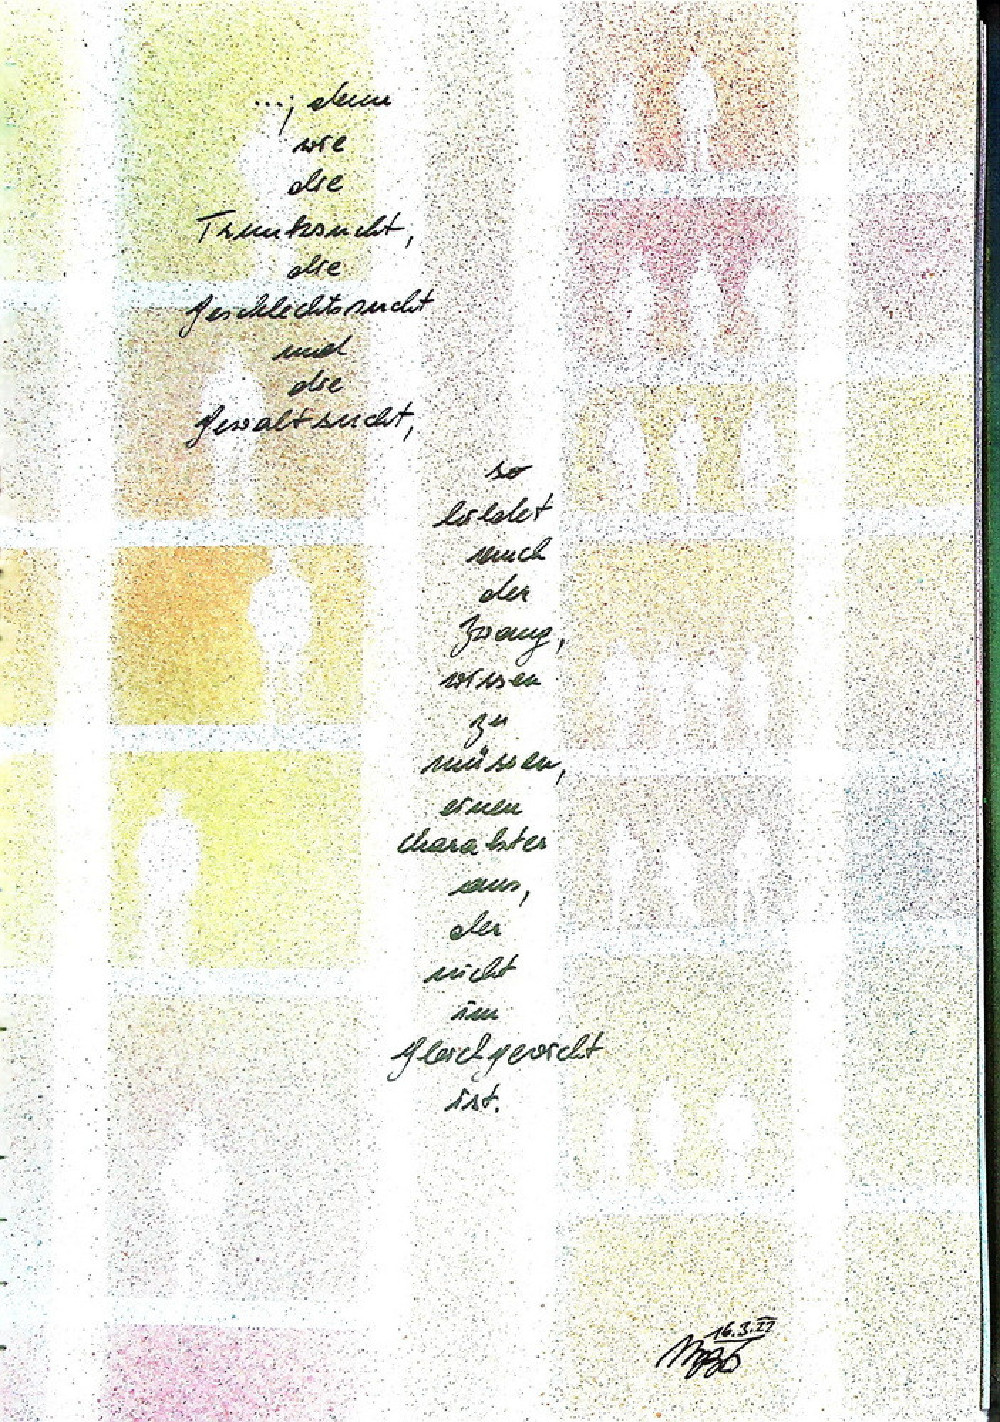 ...; denn
wie
die
Trunksucht,
die
Geschlechtssucht
und
die
Gewaltsucht,
so
bildet
auch
der
Zwang,
wissen
zu
müssen,
einen
charakter
aus,
der
nicht
im
Gleichgewicht
ist.
16.3.22